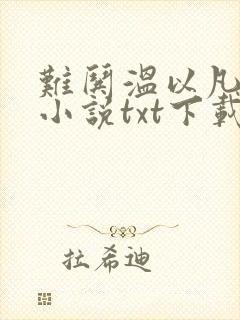 難鬨溫以凡
小說txt下載
拉希迪